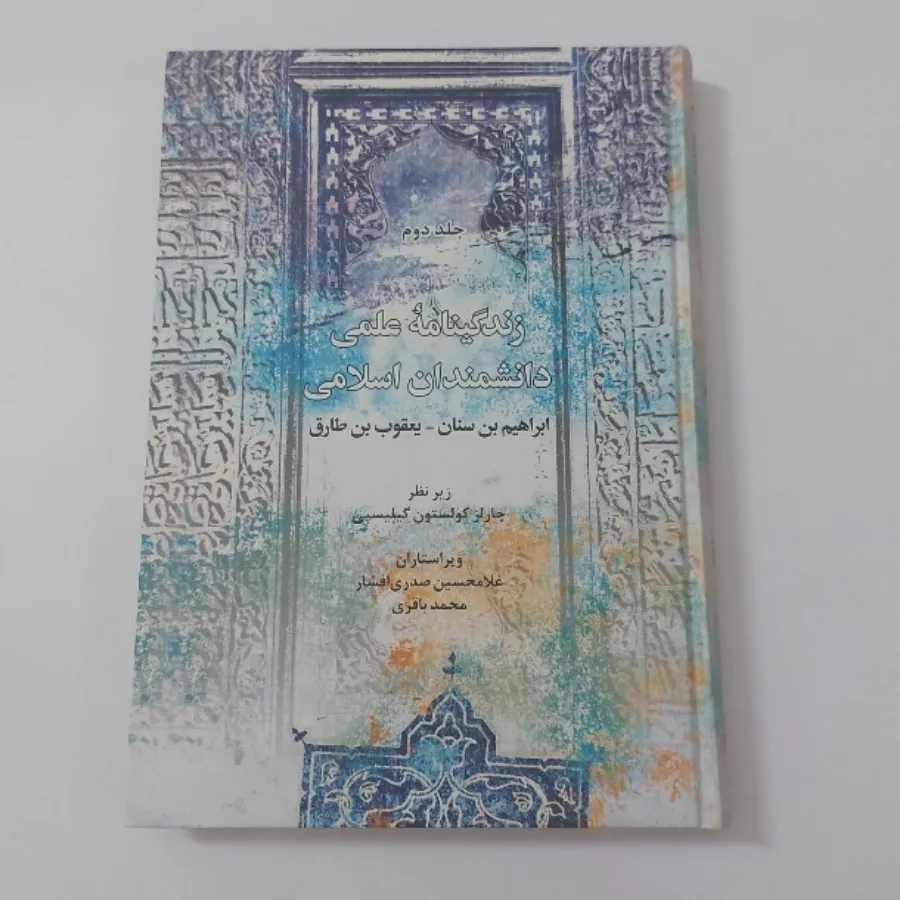 جلد دوم
زندگینامهٔ علمی
دانشمندان اسلامی
ابراهیم بن سنان - یعقوب بن طارق
زیر نظر
چارلز کولستون گیلیسپی
ویراستاران
غلامحسین صدری‌افشار
محمد باقری